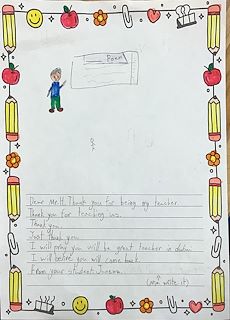 Poem
Dear Mr.H. Thank you for being my teacher.
Thank you for teaching us.
Thank you.
Just thank you.
I will pray you will be great teacher in
I will belive you will come back.
From your student:
write it)